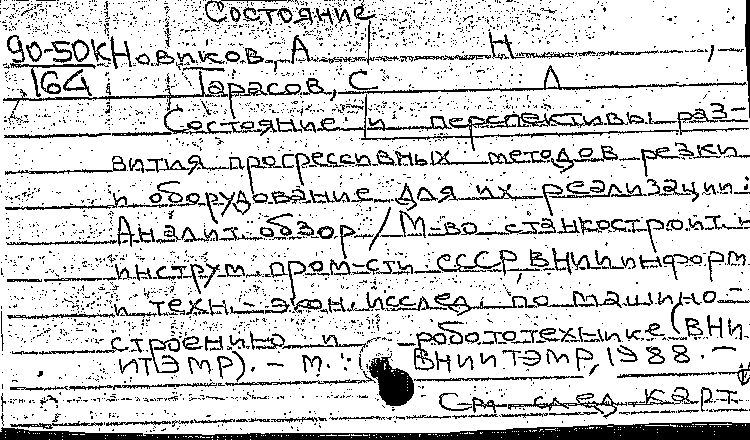 Состояние
90-50К Новиков, А Н ,
164 Тарасов, С Л
Состояние и перспективы раз-
вития прогрессивных методов резки
и оборудование для их реализации:
Аналит. обзор / М-во станкостроит. и
инструм. пром-сти СССР, ВНИИ информ
и техн.-экон. исслед. по машино-
строению и робототехнике (ВНИ
ИТЭМР). - М. : ВНИИТЭМР, 1988. -
См след карт